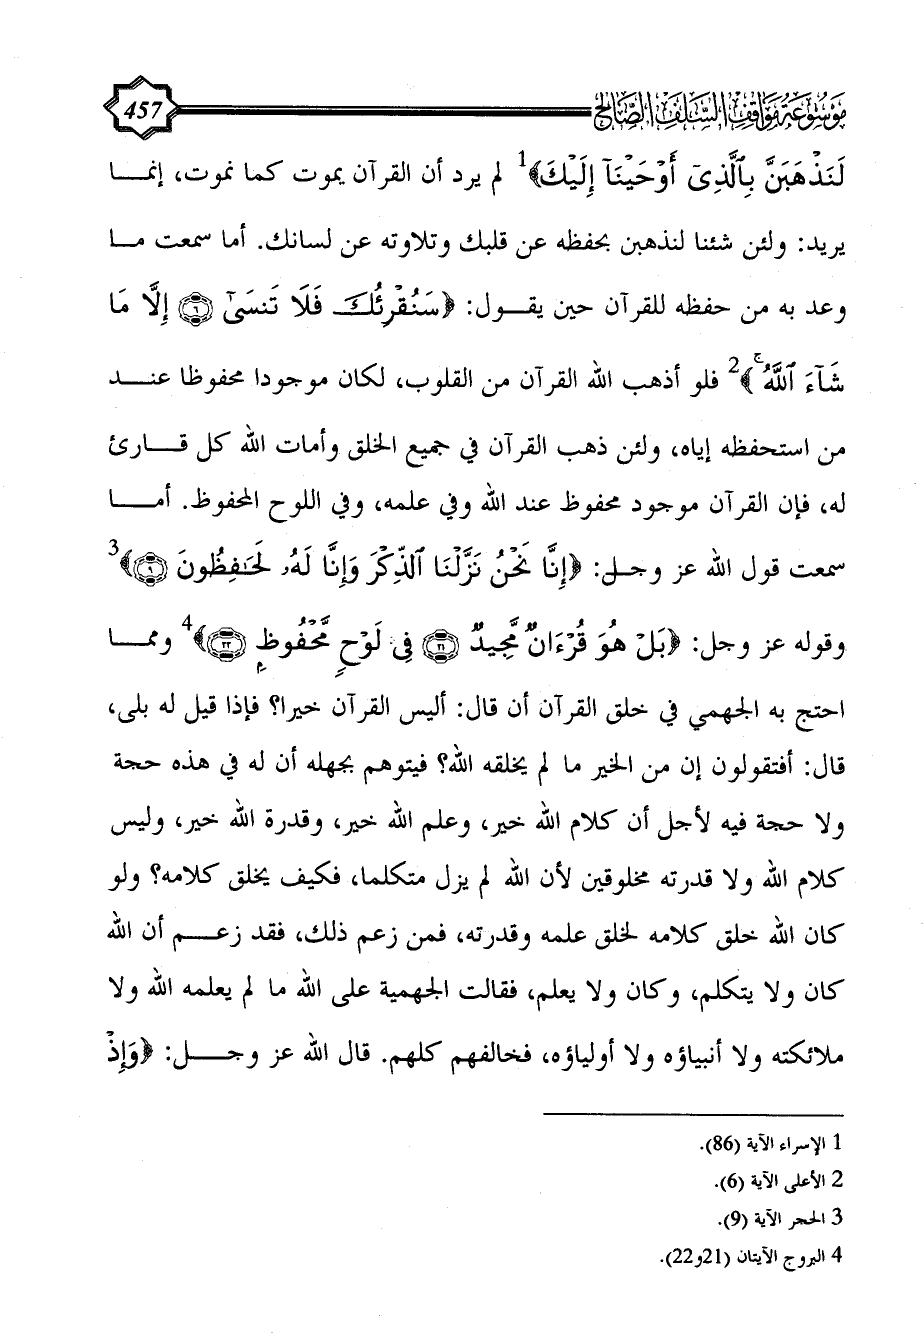 موسوعة مواقف السلف الصالح
457
لَنَذْهَبَنَّ بِٱلَّذِىٓ أَوْحَيْنَآ إِلَيْكَ﴾1 لم يرد أن القرآن يموت كما نموت، إنمـــا
يريد: ولئن شئنا لنذهبن بحفظه عن قلبك وتلاوته عن لسانك. أما سمعت مـا
وعد به من حفظه للقرآن حين يقـول: ﴿سَنُقْرِئُكَ فَلَا تَنسَىٰٓ ٦ إِلَّا مَا
شَآءَ ٱللَّهُ ۚ﴾2 فلو أذهب الله القرآن من القلوب، لكان موجودا محفوظا عنـــد
من استحفظه إياه، ولئن ذهب القرآن في جميع الخلق وأمات الله كل قـــارئ
له، فإن القرآن موجود محفوظ عند الله وفي علمه، وفي اللوح المحفوظ. أمـــا
سمعت قول الله عز وجـل: ﴿إِنَّا نَحْنُ نَزَّلْنَا ٱلذِّكْرَ وَإِنَّا لَهُۥ لَحَٰفِظُونَ ٩﴾3
وقوله عز وجل: ﴿بَلْ هُوَ قُرْءَانٌ مَّجِيدٌ ٢١ فِى لَوْحٍ مَّحْفُوظٍۭ ٢٢﴾4 وممـــا
احتج به الجهمي في خلق القرآن أن قال: أليس القرآن خيرا؟ فإذا قيل له بلى،
قال: أفتقولون إن من الخير ما لم يخلقه الله؟ فيتوهم بجهله أن له في هذه حجة
ولا حجة فيه لأجل أن كلام الله خير، وعلم الله خير، وقدرة الله خير، وليس
كلام الله ولا قدرته مخلوقين لأن الله لم يزل متكلما، فكيف يخلق كلامه؟ ولو
كان الله خلق كلامه لخلق علمه وقدرته، فمن زعم ذلك، فقد زعـــم أن الله
كان ولا يتكلم، وكان ولا يعلم، فقالت الجهمية على الله ما لم يعلمه الله ولا
ملائكته ولا أنبياؤه ولا أولياؤه، فخالفهم كلهم. قال الله عز وجـــل: ﴿وَإِذْ
1 الإسراء الآية (86).
2 الأعلى الآية (6).
3 الحجر الآية (9).
4 البروج الآيتان (21و22).